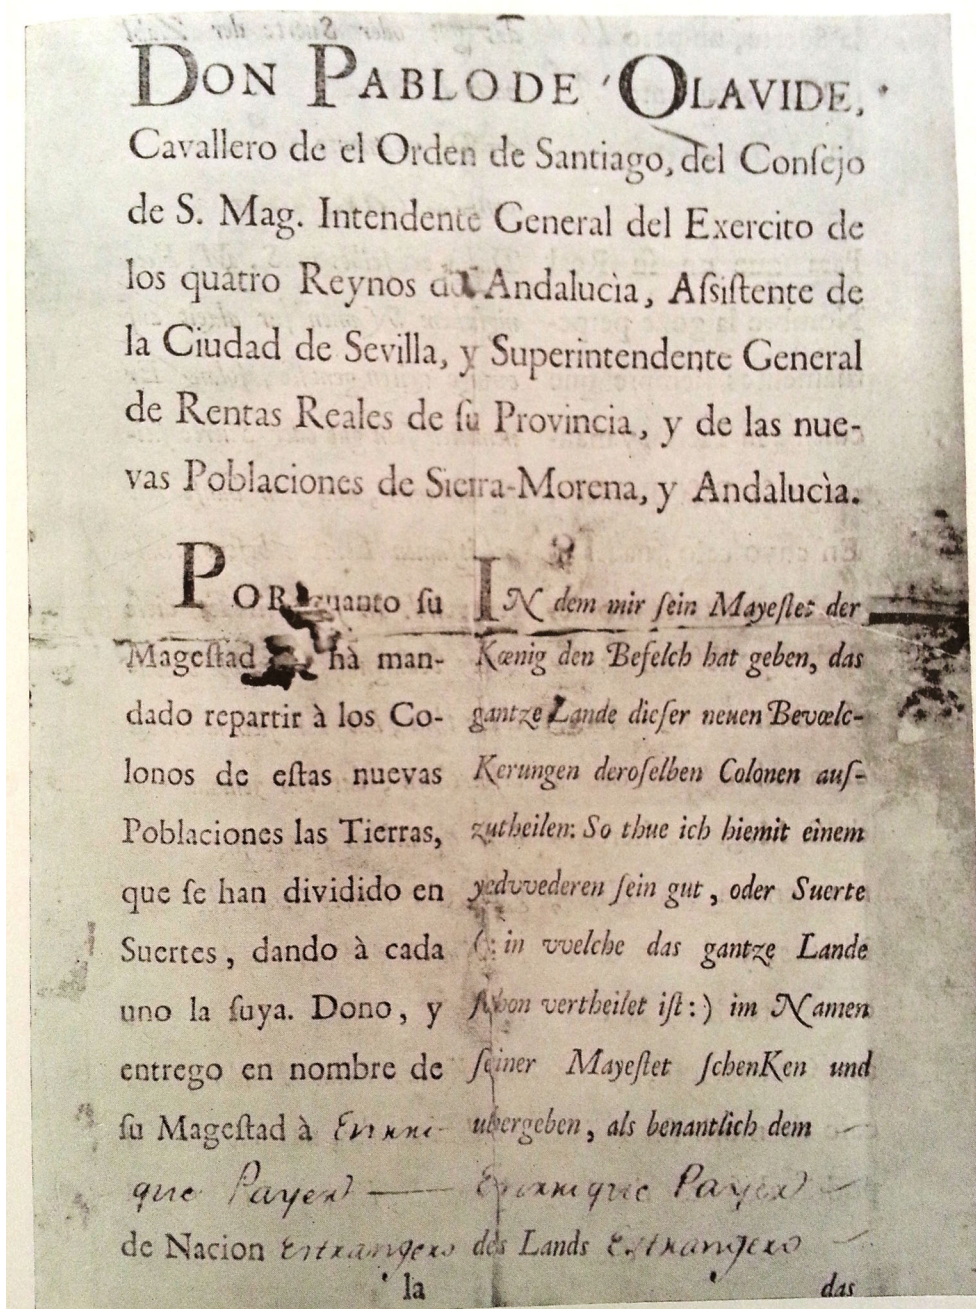 DON PABLO DE OLAVIDE,
Cavallero de el Orden de Santiago, del Conſejo
de S. Mag. Intendente General del Exercito de
los quatro Reynos de Andalucìa, Aſsiſtente de
la Ciudad de Sevilla, y Superintendente General
de Rentas Reales de ſu Provincia, y de las nue-
vas Poblaciones de Sierra-Morena, y Andalucìa.
POR quanto ſu
Mageſtad hà man-
dado repartir à los Co-
lonos de eſtas nuevas
Poblaciones las Tierras,
que ſe han dividido en
Suertes, dando à cada
uno la ſuya. Dono, y
entrego en nombre de
ſu Mageſtad à Enrri-
que Payer
de Nacion Estrangero
la
IN dem mir ſein Mayeſtet der
Kœnig den Befelch hat geben, das
gantze Lande dieſer neuen Bevœlc-
Kerungen deroſelben Colonen auſ-
zutheilen: So thue ich hiemit einem
yedvvederen ſein gut, oder Suerte
(: in vvelche das gantze Lande
ſchon vertheilet iſt:) im Namen
ſeiner Mayeſtet ſchenKen und
ubergeben, als benantlich dem
Enrrique Payer
des Lands Estrangero
das